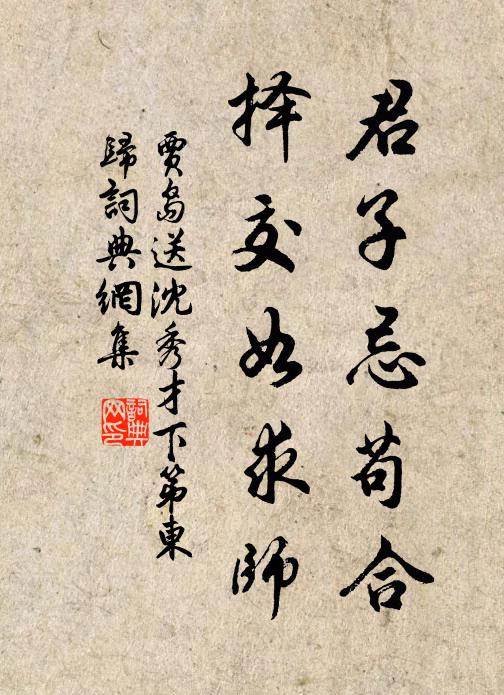 君子忌苟合
择交如求師
賈島送沈秀才下第東
歸詞典網集
詞典
网印